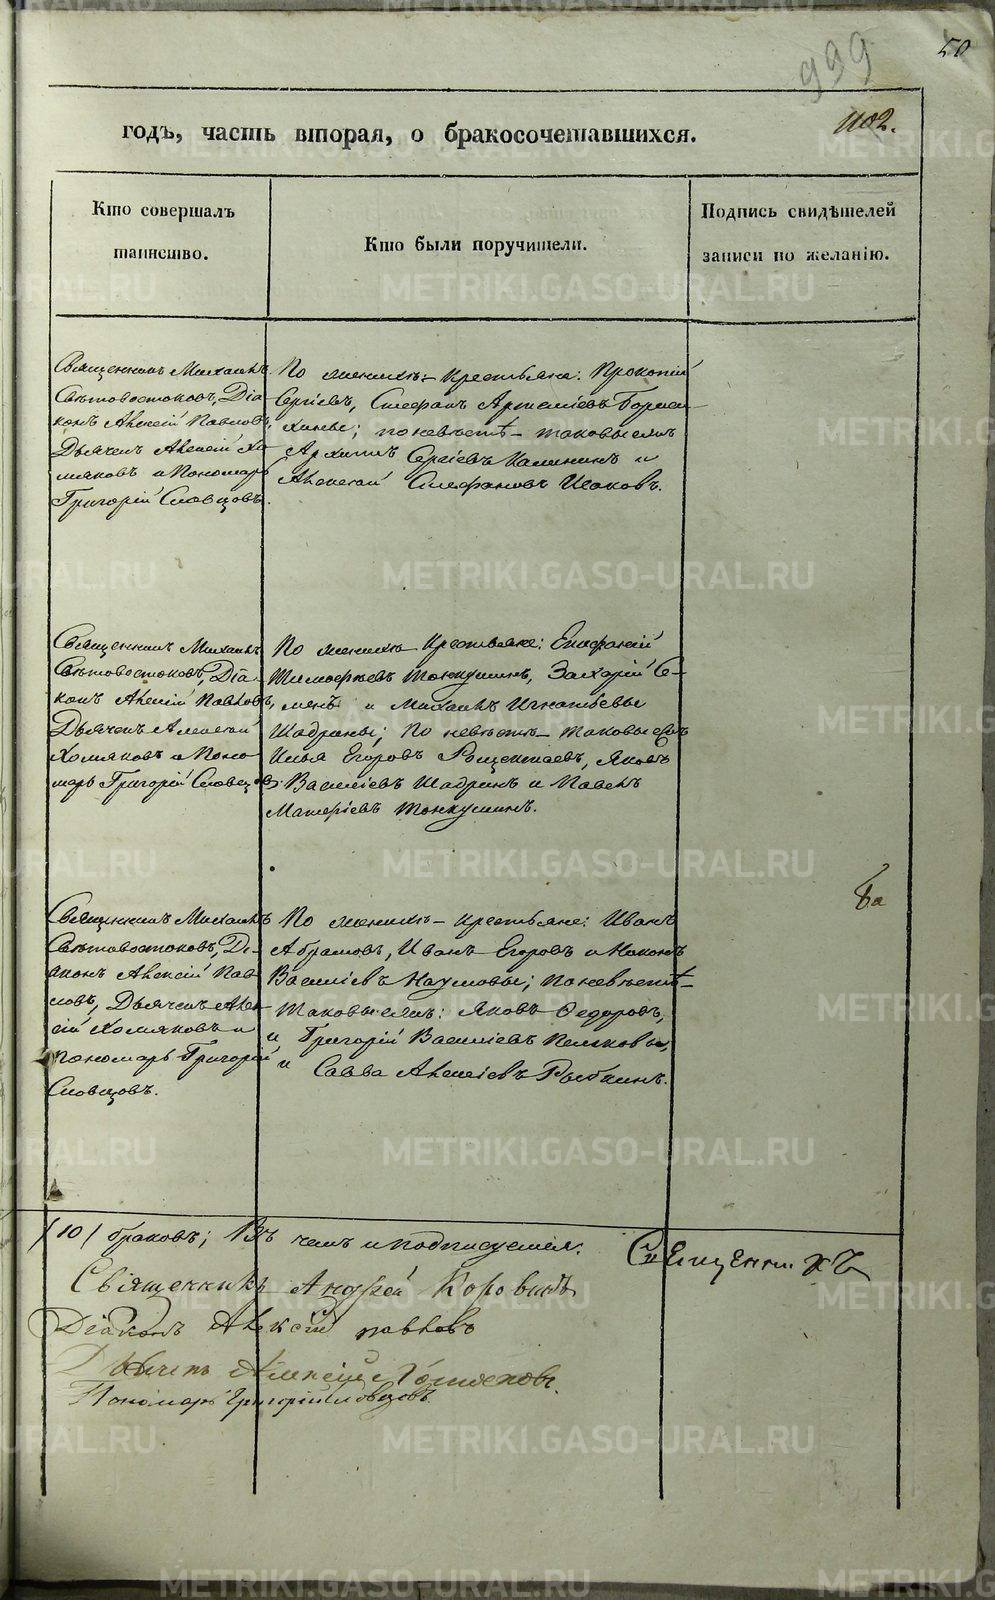 50
999
1102.
годъ, часть вторая, о бракосочетавшихся.
Кто совершалъ
таинство.
Кто были поручители.
Подпись свидѣтелей
записи по желанію.
Священникъ Михаилъ
Свѣтовостоковъ, Діа-
конъ Алексій Павловъ,
Дьячекъ Алексій Хо-
мяковъ и Пономарь
Григорій Словцовъ.
По женихѣ: крестьяне: Прокопій
Сергіевъ, Стефанъ Артеміевъ
; по невѣстѣ – таковые жъ
Архипъ Сергіевъ Калининъ и
Алексѣй Стефановъ Исаковъ.
Священникъ Михаилъ
Свѣтовостоковъ, Діа-
конъ Алексій Павловъ,
Дьячекъ Алексѣй
Хомяковъ и Поно-
марь Григорій Словцовъ
По женихѣ крестьяне: Епифаній
Тимофѣевъ Тонкушинъ, Захарій Се-
менъ и Михаилъ Игнатьевы
Шадрины; по невѣстѣ – таковые жъ
Илья Егоровъ, Яковъ
Василіевъ Шадринъ и Павелъ
Тонкушинъ.
ба
Священникъ Михаилъ
Свѣтовостоковъ, Ді-
аконъ Алексій Пав-
ловъ, Дьячекъ Алек-
сій Хомяковъ и
пономарь Григорій
Словцовъ.
По женихѣ – крестьяне: Иванъ
Абрамовъ, Иванъ Егоровъ и Никонъ
Василіевъ Наумовы; по невѣстѣ –
таковые жъ: Яковъ Ѳедоровъ,
и Григорій Василіевъ,
и Савва Алексіевъ Рыбкинъ.
/10/ браковъ; Въ чемъ и подписуемся:
Священникъ
Свіященникъ Андрей Коровинъ
Діаконъ Алексій Павловъ
Дьячекъ Алексій Хомяковъ.
Пономарь Григорій Словцовъ
METRIKI.GASO-URAL.RU